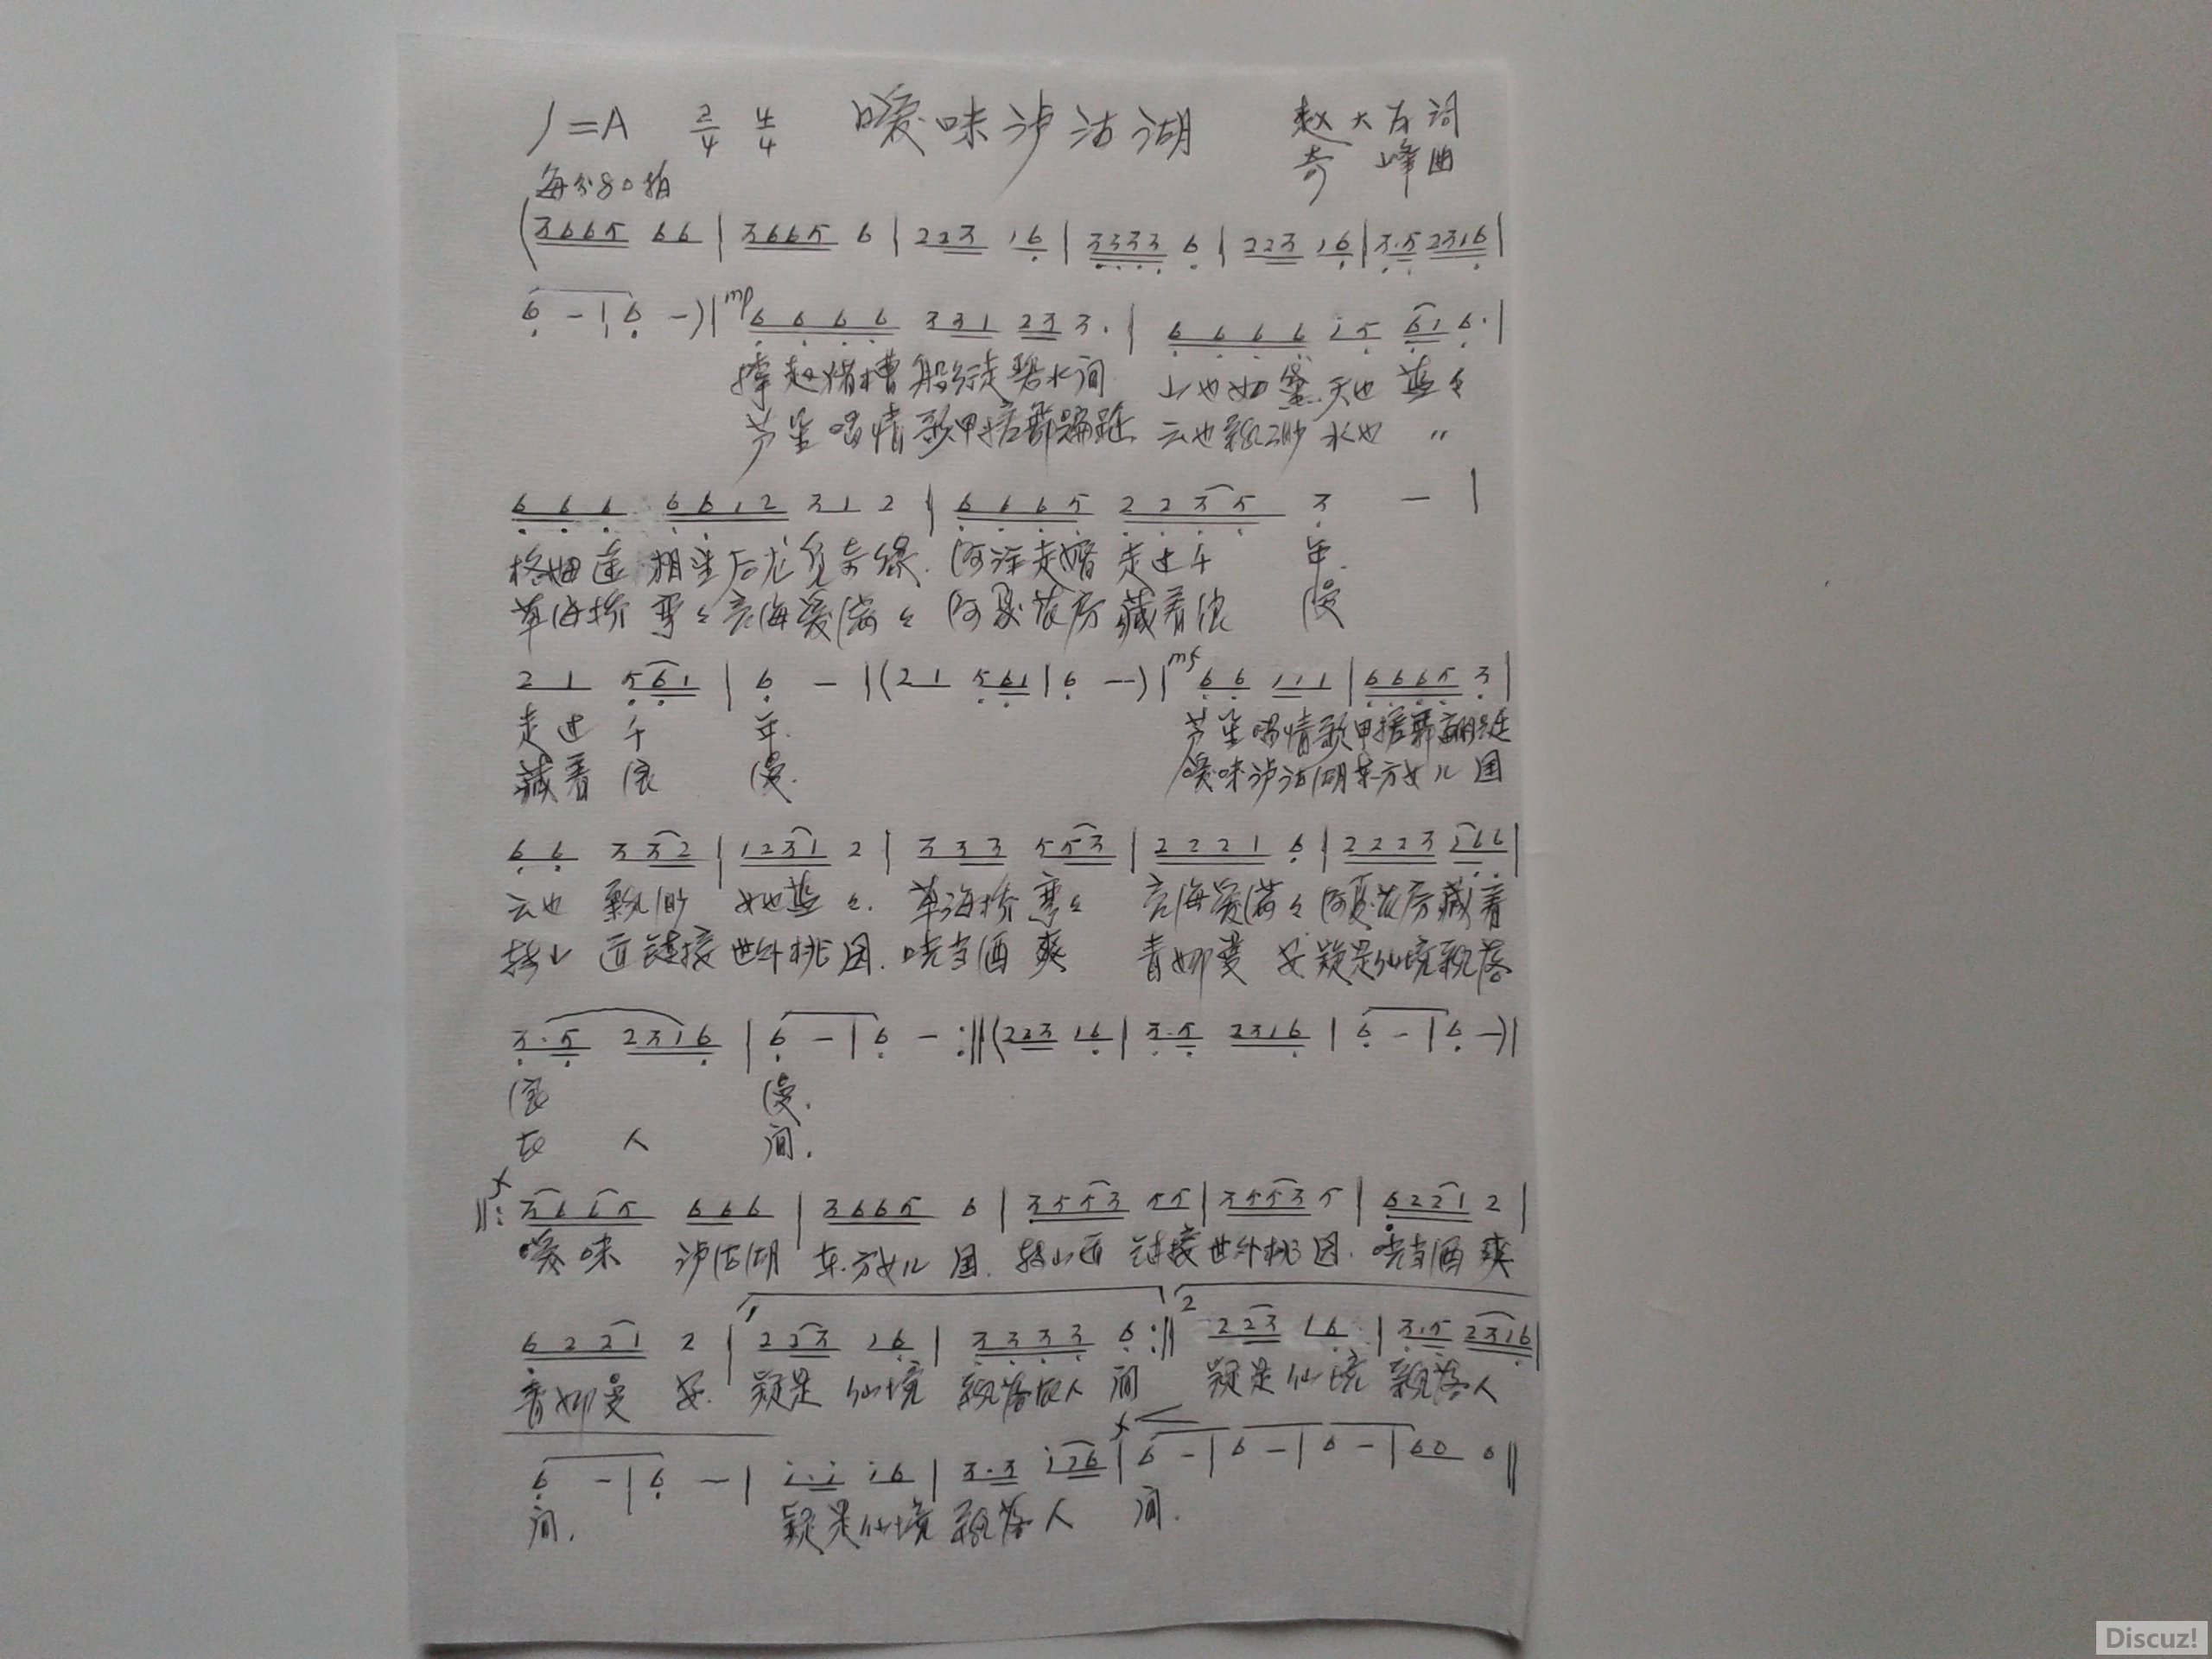 1=A 2/4 4/4 暧味泸沽湖 赵大有词
奇峰曲
每分80拍
(3665 66 | 3665 6 | 223 16 | 3333 6 | 223 16 | 3·5 2316 |
6 - | 6 -) | mp 6666 331 23 3· | 6666 i5 61 6· |
撑起猪槽船行走碧水间 山也如黛天也蓝々
芦笙唱情歌甲搓舞蹁跹 云也飘渺水也 〃
666 6612 31 2 | 6665 2235 3 - |
格姆 相 后 奇缘 阿注走婚走过千 年.
草海桥弯々亮海爱满々 阿夏花房藏着浪 漫
2 1 561 | 6 - | (21 561 | 6 -) | mf 66 111 | 6665 3 |
走过千 年. 芦笙唱情歌甲搓舞蹁跹
藏着浪 漫. 暧味泸沽湖东方女儿国
66 332 | 1231 2 | 333 553 | 2221 6 | 2223 166 |
云也飘渺 蓝々. 草海桥弯々 亮海爱满々阿夏花房藏着
转山 链接世外桃园. 咣当酒爽 青娜曼安疑是仙境飘落
3·5 2316 | 6 - | 6 - :|| (223 16 | 3·5 2316 | 6 - | 6 -) |
浪 漫.
在 人 间.
f ||: 3665 666 | 3665 6 | 3553 55 | 3553 5 | 6221 2 |
暧味 泸沽湖 东方女儿国. 转山 链接世外桃园. 咣当酒爽
6221 2 | 1 223 16 | 3333 6 :|| 2 223 16 | 3·5 2316 |
青娜曼 安. 疑是仙境 飘落在人间 疑是仙境 飘落人
6 - | 6 - | i·i i6 | 3·3 i76 | f 6 - | 6 - | 6 - | 60 0 ||
间. 疑是仙境飘落人 间.
Discuz!